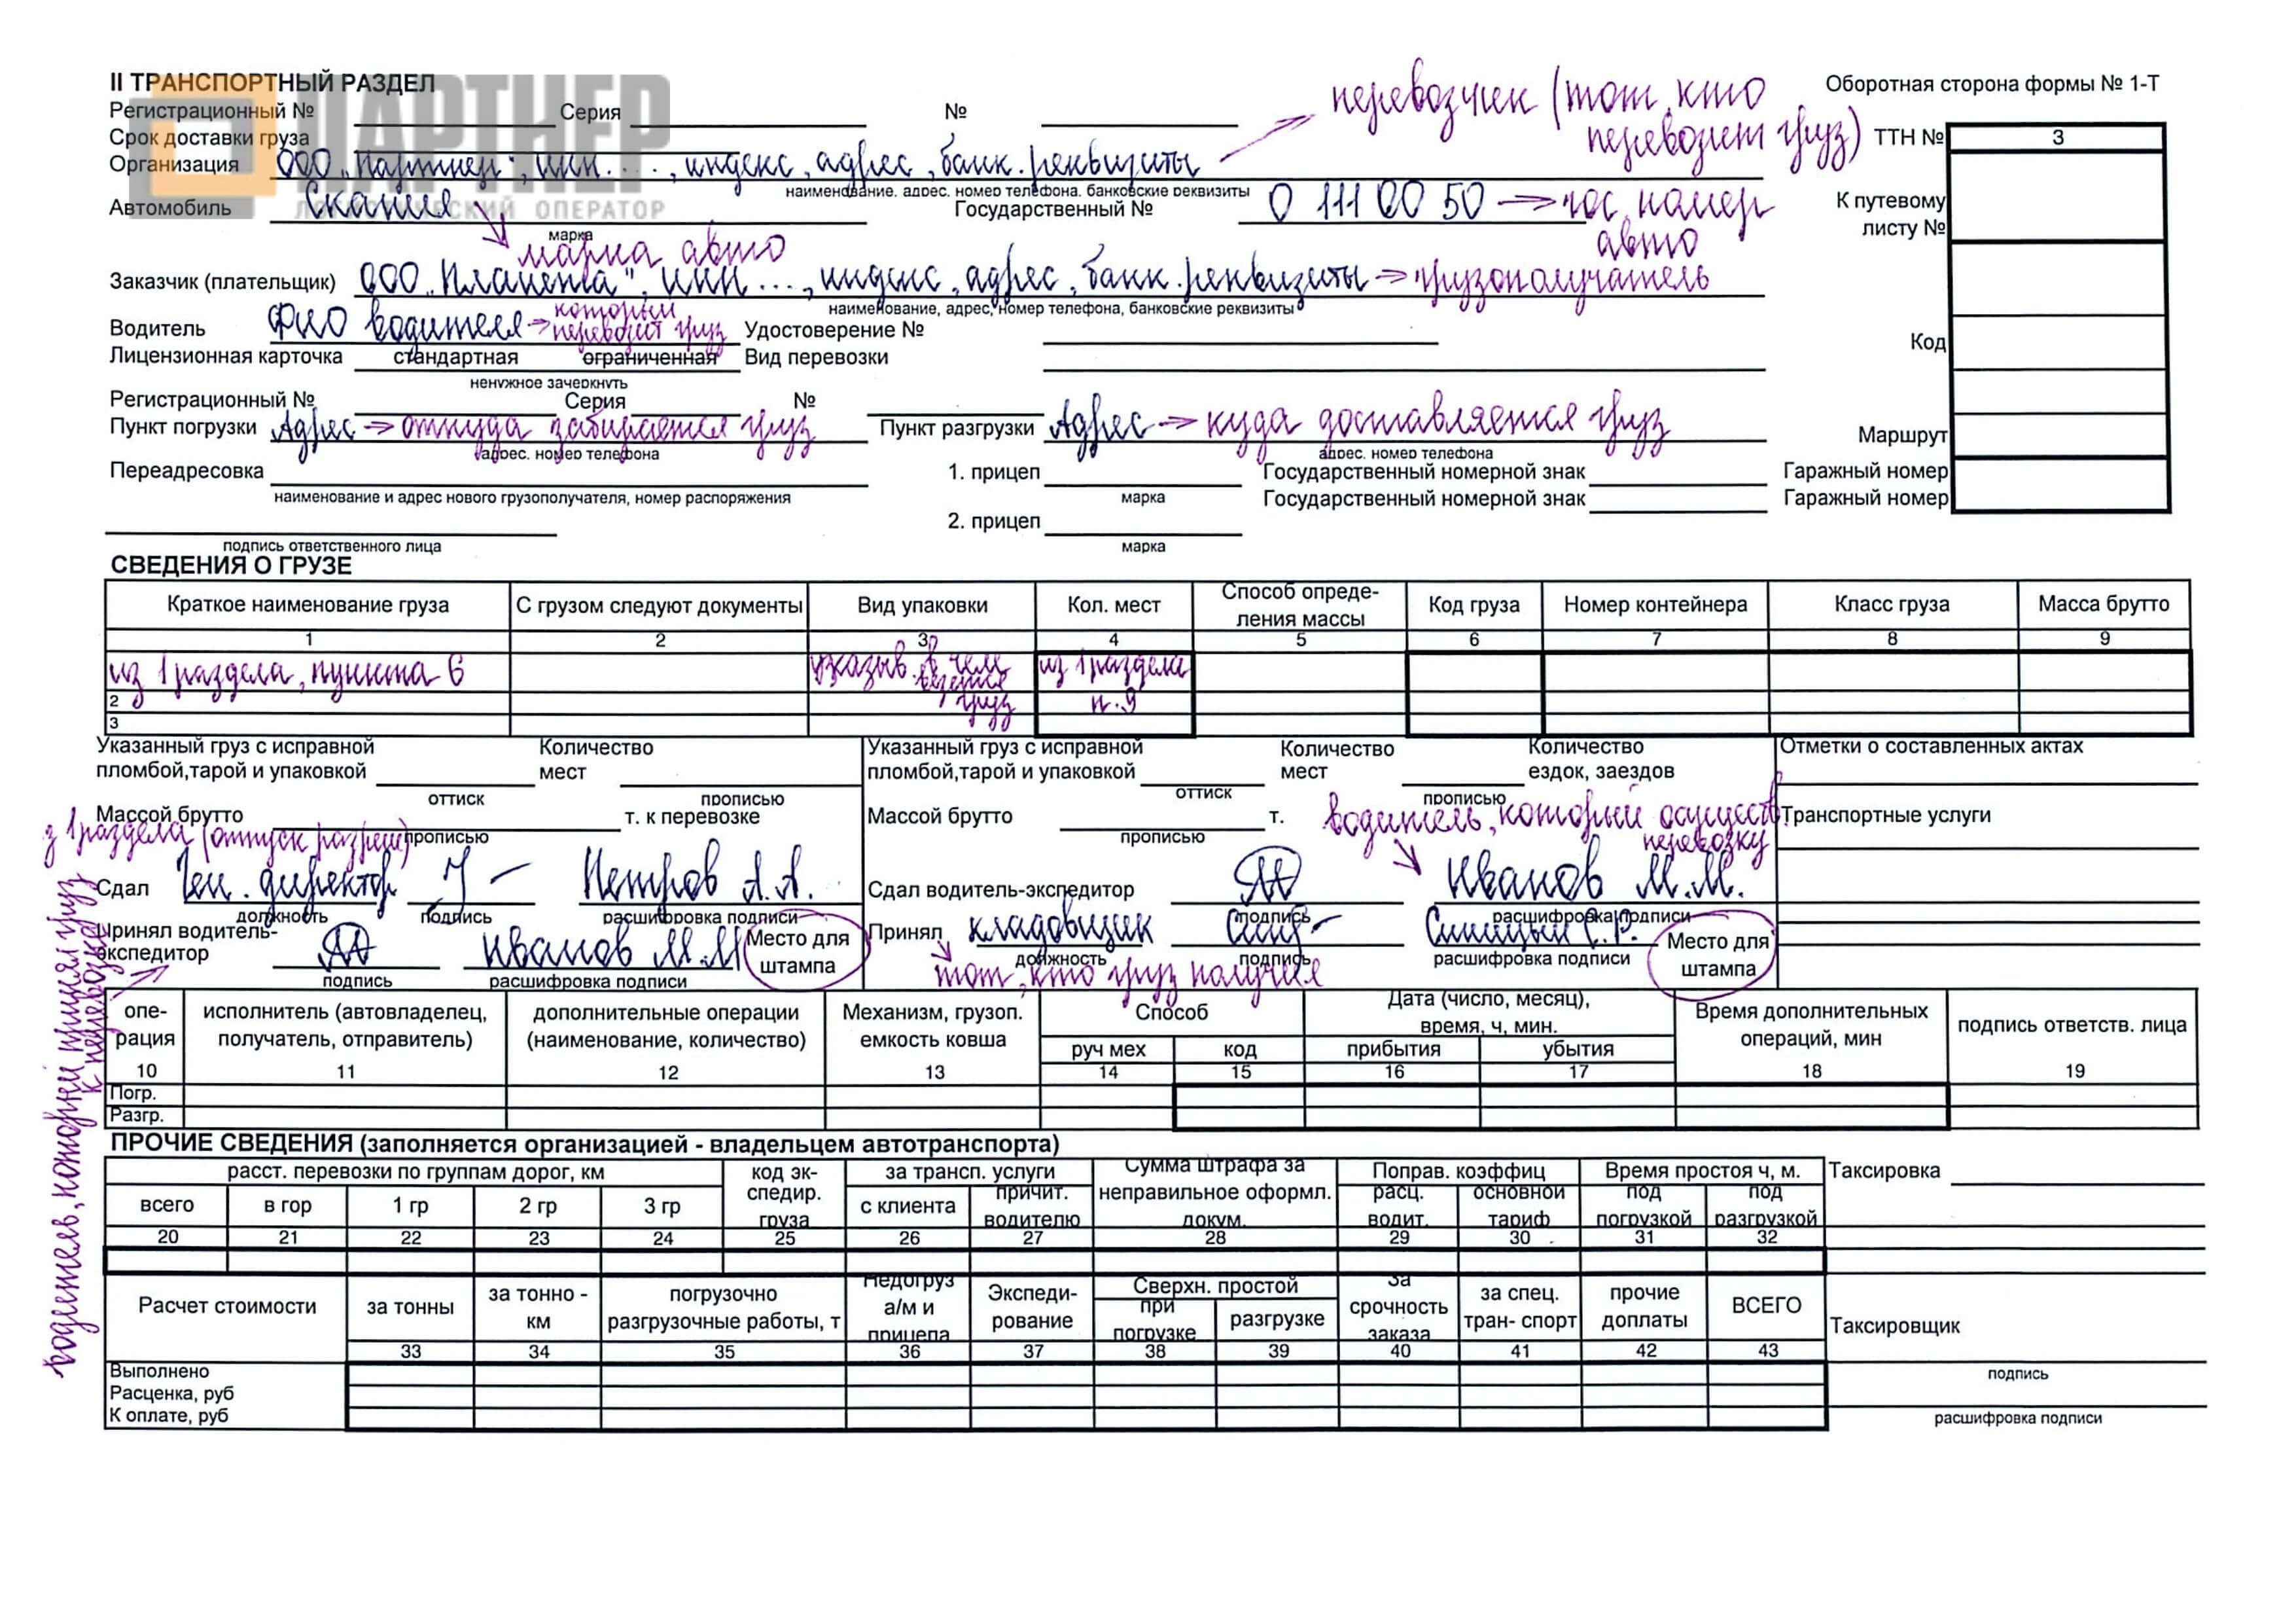 II ТРАНСПОРТНЫЙ РАЗДЕЛ
ПАРТНЕР
ЛОГИСТИЧЕСКИЙ ОПЕРАТОР
перевозчик (тот, кто перевозит груз)
Оборотная сторона формы № 1-Т
Регистрационный № Серия №
ТТН № 3
Срок доставки груза
Организация ООО "Партнер", ИНН...., индекс, адрес, банк. реквизиты
наименование, адрес, номер телефона, банковские реквизиты
Автомобиль Скания Государственный № О 111 ОО 50 → гос. номер авто
К путевому листу №
марка
марка авто
Заказчик (плательщик) ООО "Планета", ИНН ..., индекс, адрес, банк. реквизиты → грузополучатель
наименование, адрес, номер телефона, банковские реквизиты
Водитель ФИО водителя → который перевозит груз Удостоверение №
Код
Лицензионная карточка стандартная ограниченная Вид перевозки
ненужное зачеркнуть
Регистрационный № Серия №
Пункт погрузки Адрес → откуда забирается груз Пункт разгрузки Адрес → куда доставляется груз
Маршрут
адрес, номер телефона адрес, номер телефона
Переадресовка 1. прицеп Государственный номерной знак Гаражный номер
наименование и адрес нового грузополучателя, номер распоряжения марка Государственный номерной знак Гаражный номер
2. прицеп
подпись ответственного лица марка
СВЕДЕНИЯ О ГРУЗЕ
Краткое наименование груза С грузом следуют документы Вид упаковки Кол. мест Способ определения массы Код груза Номер контейнера Класс груза Масса брутто
1 2 3 4 5 6 7 8 9
из 1 раздела, пункта 6 указыв. в чем везется груз из 1 раздела п.9
2
3
Указанный груз с исправной пломбой,тарой и упаковкой Количество мест
оттиск прописью
Массой брутто т. к перевозке
прописью
з 1 раздела (отпуск разреш)
Сдал Ген. директор Петров А.А.
должность подпись расшифровка подписи
Принял водитель-экспедитор Иванов М.М Место для штампа
подпись расшифровка подписи
водитель, который принял груз к перевозке
Указанный груз с исправной пломбой,тарой и упаковкой Количество мест Количество ездок, заездов
оттиск прописью
Массой брутто т.
прописью
водитель, который осуществ. перевозку
Сдал водитель-экспедитор Иванов М.М.
подпись расшифровка подписи
Принял кладовщик Синицын С.Р. Место для штампа
должность подпись расшифровка подписи
тот, кто груз получил
Отметки о составленных актах
Транспортные услуги
опе-рация исполнитель (автовладелец, получатель, отправитель) дополнительные операции (наименование, количество) Механизм, грузоп. емкость ковша Способ Дата (число, месяц), время, ч, мин. Время дополнительных операций, мин подпись ответств. лица
руч мех код прибытия убытия
10 11 12 13 14 15 16 17 18 19
Погр.
Разгр.
ПРОЧИЕ СВЕДЕНИЯ (заполняется организацией - владельцем автотранспорта)
расст. перевозки по группам дорог, км код эк-спедир. груза за трансп. услуги Сумма штрафа за неправильное оформл. докум. Поправ. коэффиц Время простоя ч, м. Таксировка
всего в гор 1 гр 2 гр 3 гр с клиента причит. водителю расц. водит. основной тариф под погрузкой под разгрузкой
20 21 22 23 24 25 26 27 28 29 30 31 32
Расчет стоимости за тонны за тонно - км погрузочно разгрузочные работы, т Недогруз а/м и прицепа Экспеди-рование Сверхн. простой За срочность заказа за спец. тран- спорт прочие доплаты ВСЕГО
при погрузке разгрузке
Таксировщик
33 34 35 36 37 38 39 40 41 42 43
Выполнено
подпись
Расценка, руб
К оплате, руб
расшифровка подписи